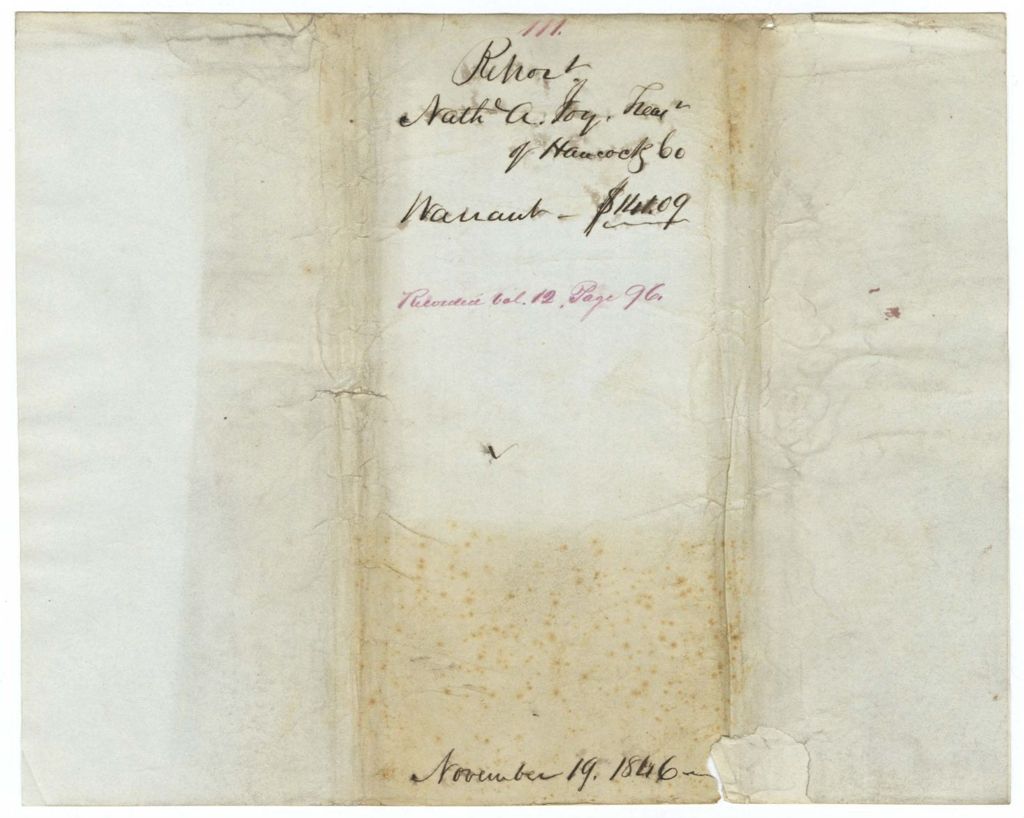 111.
Report
Nathl A. Joy. Treasr
of Hancock Co
Warrant - $141.09
Recorded Vol. 12. Page 96.
November 19. 1846